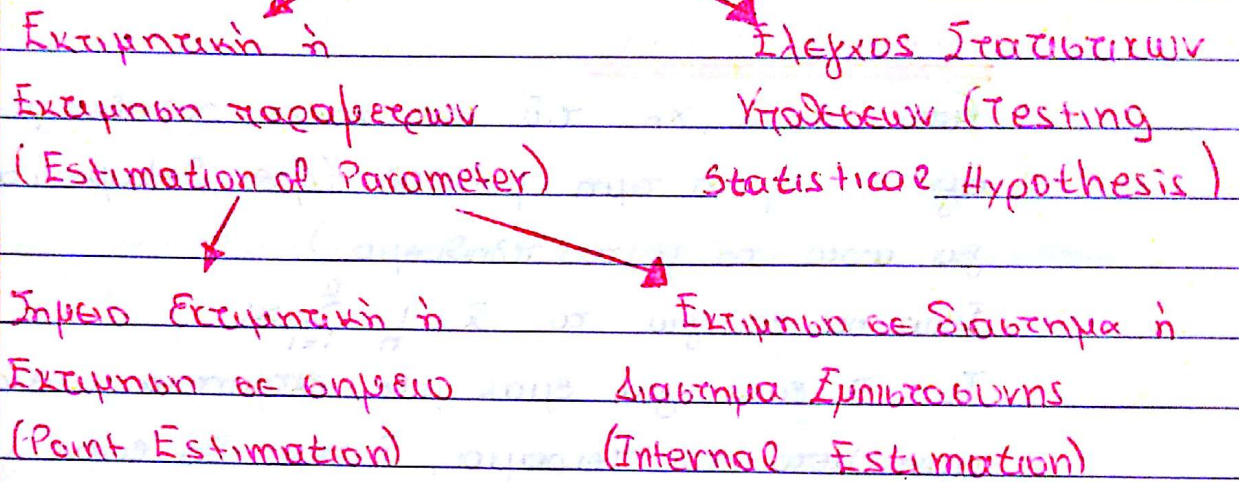 Εκτιμητική ή
Εκτίμηση παραμέτρων
(Estimation of Parameter)
Έλεγχος Στατιστικων
Υποθέσεων (Testing
Statistical Hypothesis)
Σημειο Εκτιμητική ή
Εκτίμηση σε σημειο
(Point Estimation)
Εκτιμηση σε διαστημα ή
Διαστημα Εμπιστοσυνης
(Internal Estimation)